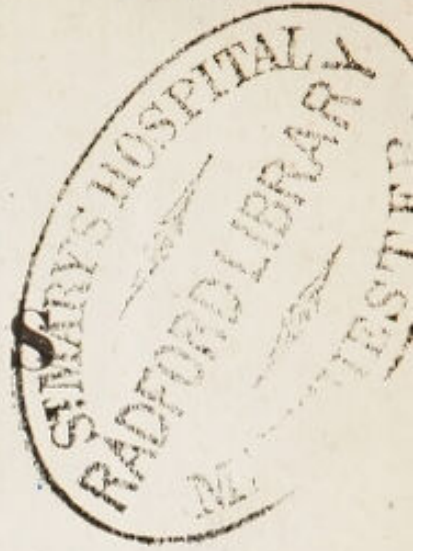 ST MARY'S HOSPITAL
RADFORD LIBRARY
M
HESTER
S